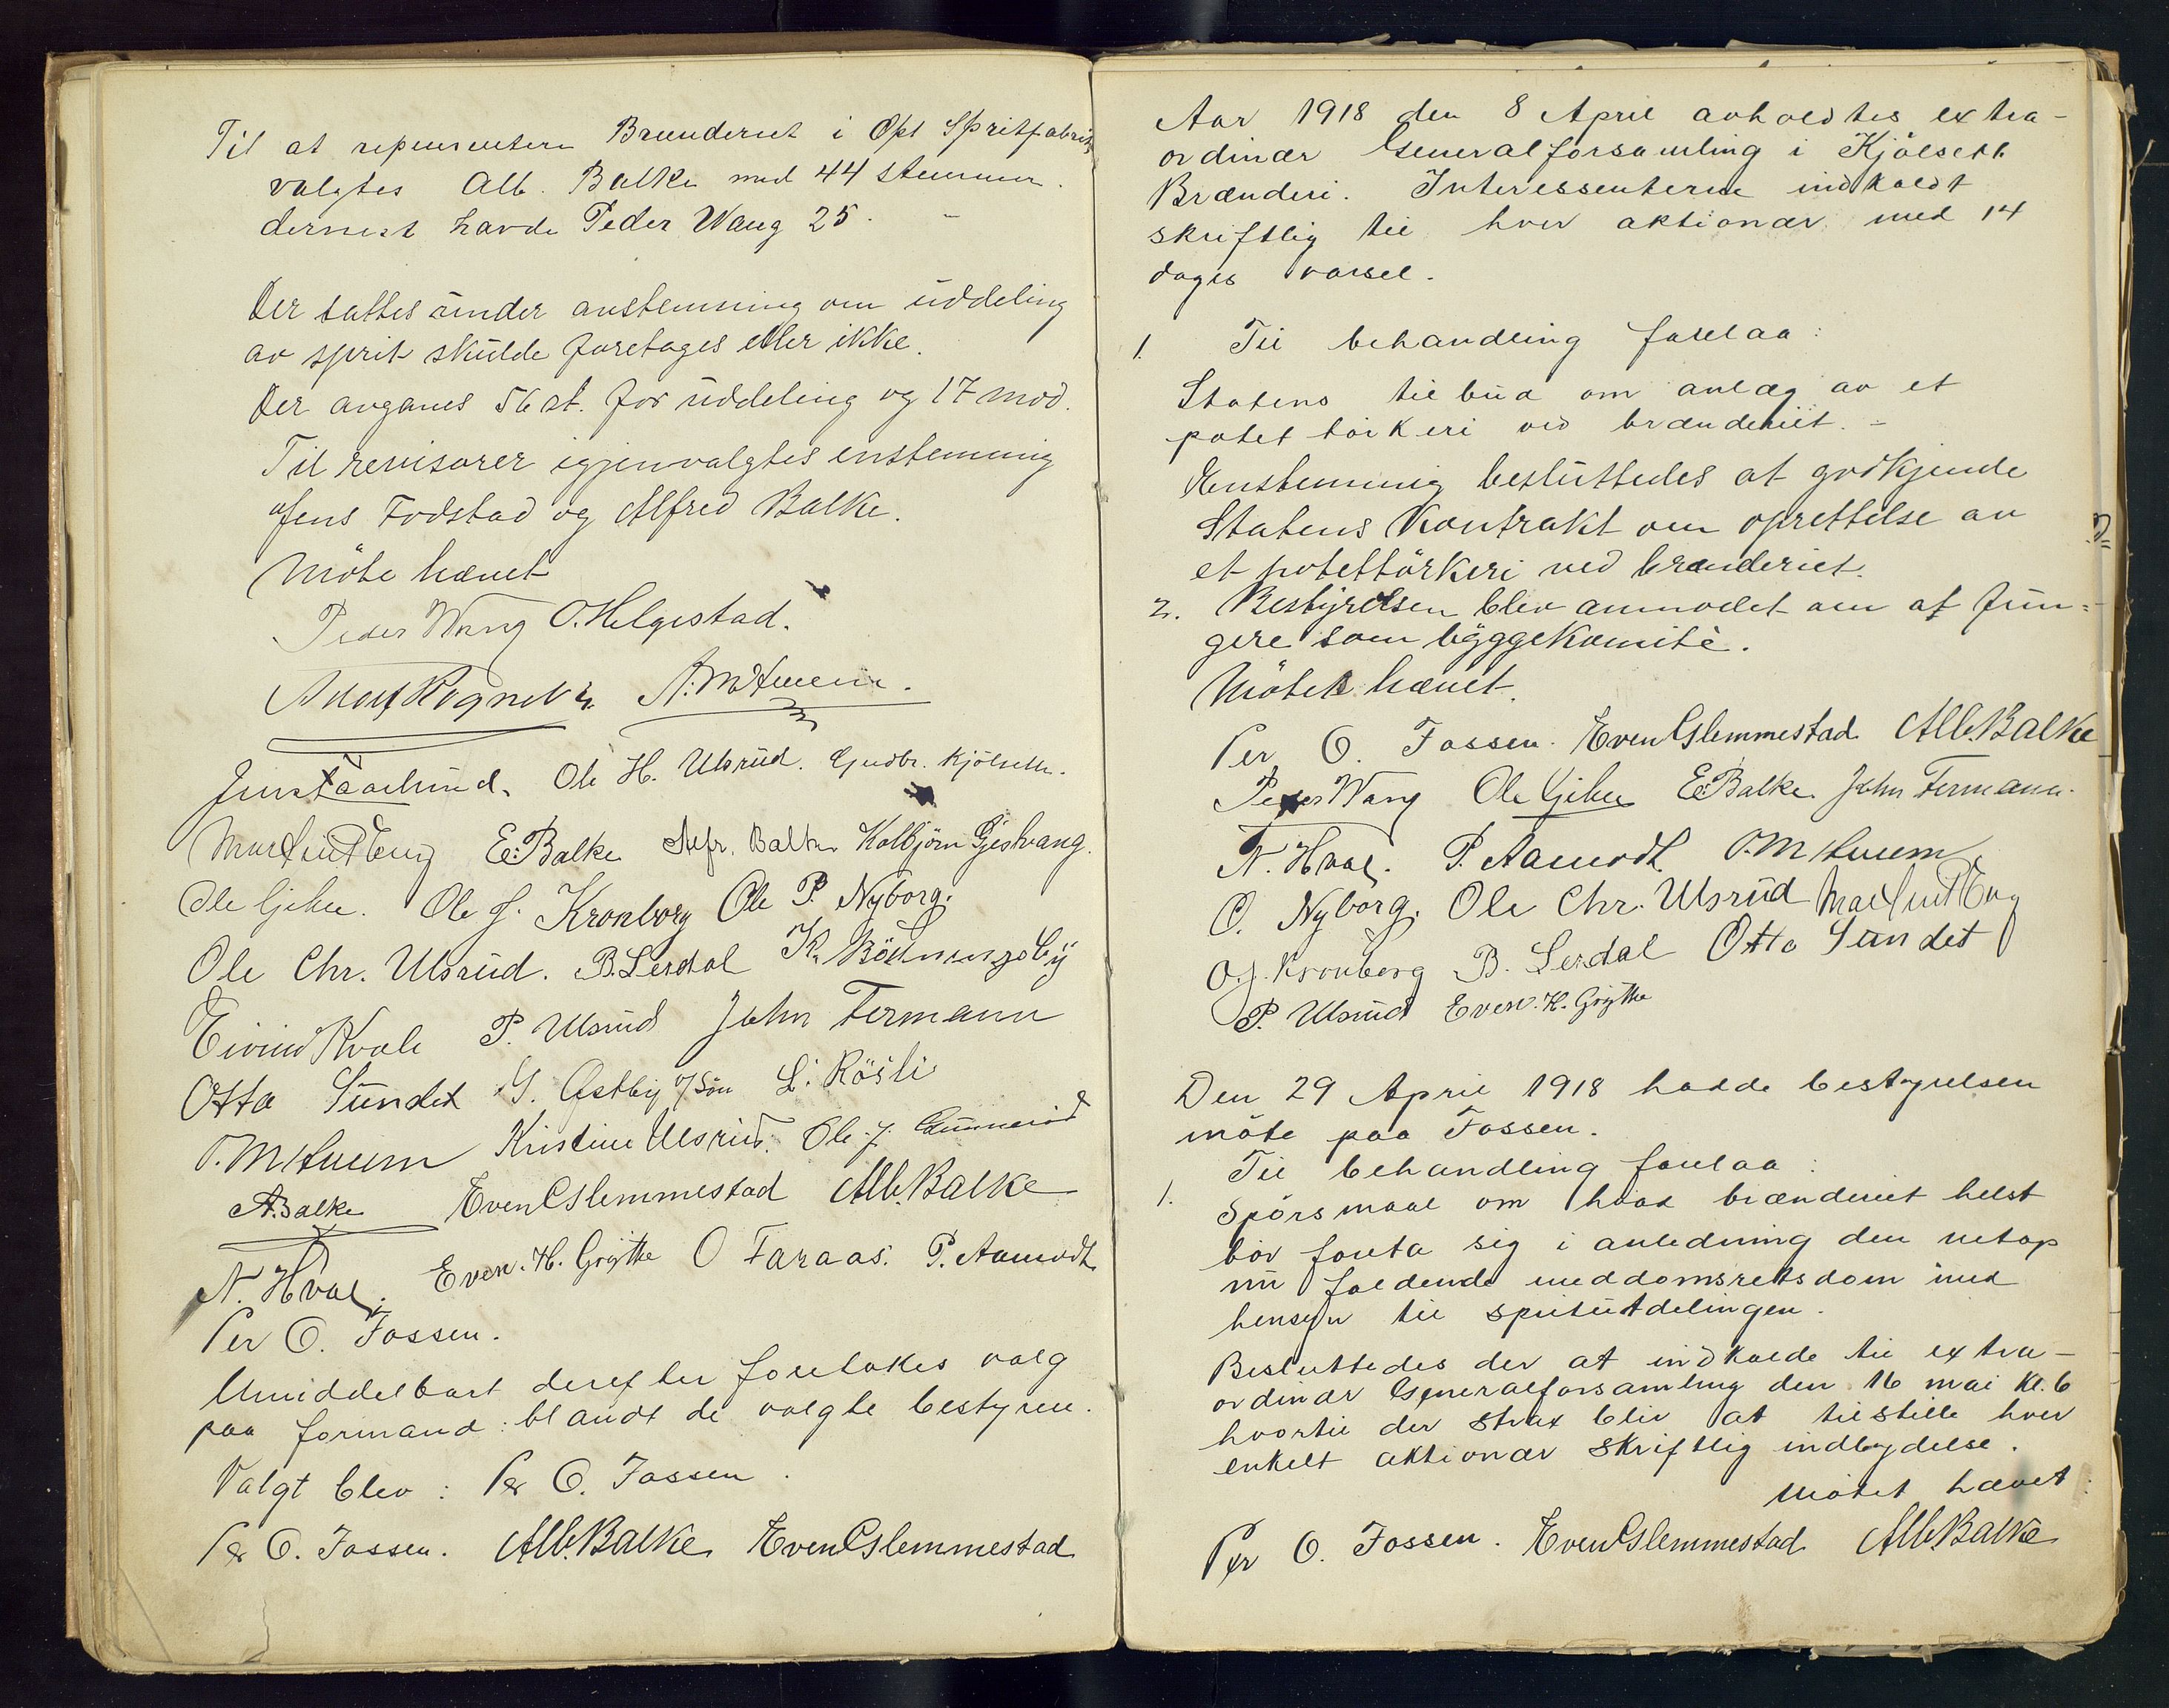 Til at representere Brænderiet i Opl Spritfabrik
valgtes Alb. Balke med 44 stemmer.
dernest havde Peder Wang 25. –
Der sattes under avstemning om uddeling
av sprit skulde foretages eller ikke.
Der avgaves 56 st. for uddeling og 17 mod.
Til revisorer igjenvalgtes enstemmig
Jens Fodstad og Alfred Balke.
Møte hævet
Peder Wang O. Helgestad.
Adolf Rognet
Ole H. Ulsrud. Gudbr. Kjölseth.
E. Balke Alfr. Balke Kolbjørn Gjestvang.
Ole Gihle. Ole J. Kronborg Ole P. Nyborg.
Ole Chr. Ulsrud. B. Lerdal
Eivind Kvale P. Ulsrud John Fermann
Otto Sundet G. Østby L. Rösli
Kristine Ulsrud. Ole J.
A. Balke Even Glemmestad Alb. Balke
N. Hval. Even. H. Grytte O Faraas. P. Aamodt
Per O. Fossen.
Umiddelbart derefter foretokes valg
paa formand blandt de valgte bestyrere.
Valgt blev: Per O. Fossen.
Per O. Fossen. Alb. Balke Even Glemmestad
Aar 1918 den 8 April avholdtes extra-
ordinær Generalforsamling i Kjölseth
Brænderi. Interessenterne indkaldt
skriftlig til hver aktionær med 14
dages varsel.
1. Til behandling forelaa:
Statens tilbud om anlæg av et
potettörkeri ved brænderiet. –
Enstemmig besluttedes at godkjende
Statens Kontrakt om oprettelse av
et potettörkeri ved brænderiet.
2. Bestyrelsen blev anmodet om at fun-
gere som byggekomité.
Mötet hævet.
Per O. Fossen. Even Glemmestad Alb. Balke
Peder Wang Ole Gihle E. Balke. John Fermann.
N. Hval. P. Aamodt
O. Nyborg. Ole Chr. Ulsrud
O. J. Kronborg B. Lerdal Otto Sundet
P. Ulsrud Even. H. Grytte
Den 29 April 1918 hadde bestyrelsen
möte paa Fossen.
Til behandling forelaa:
1. Spörsmaal om hvad brænderiet helst
bör foreta sig i anledning den netop
nu faldende meddomsretsdom med
hensyn til spritutdelingen.
Besluttedes der at indkalde til extra-
ordinær Generalforsamling den 16 mai kl. 6
hvortil der strax blir at tilstille hver
enkelt aktionær skriftlig indbydelse.
Mötet hævet.
Per O. Fossen. Even Glemmestad Alb Balke